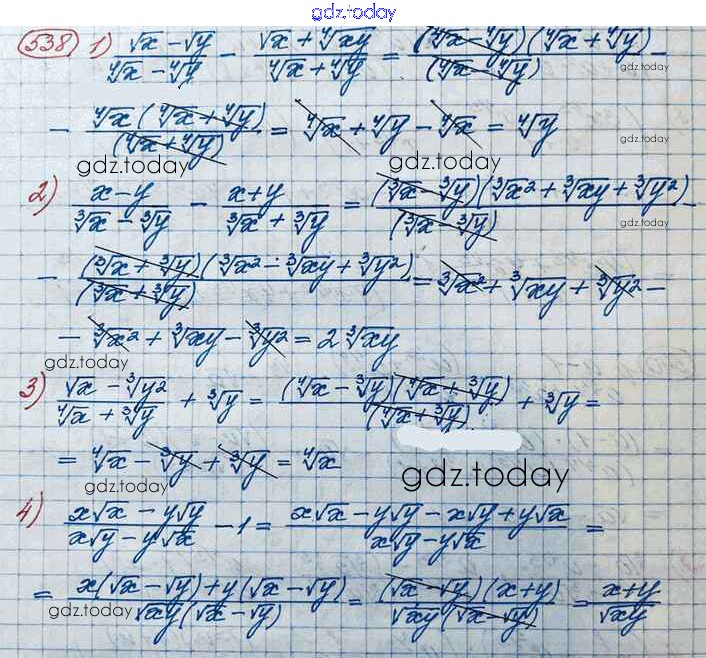 gdz.today
538 1) (√x − √y)/(⁴√x − ⁴√y) − (√x + ⁴√xy)/(⁴√x + ⁴√y) = (⁴√x − ⁴√y)(⁴√x + ⁴√y)/(⁴√x − ⁴√y) −
gdz.today
− ⁴√x(⁴√x + ⁴√y)/(⁴√x + ⁴√y) = ⁴√x + ⁴√y − ⁴√x = ⁴√y
gdz.today gdz.today gdz.today
2) (x − y)/(³√x − ³√y) − (x + y)/(³√x + ³√y) = (³√x − ³√y)(³√x² + ³√xy + ³√y²)/(³√x − ³√y) −
gdz.today
− (³√x + ³√y)(³√x² − ³√xy + ³√y²)/(³√x + ³√y) = ³√x² + ³√xy + ³√y² −
− ³√x² + ³√xy − ³√y² = 2 ³√xy
gdz.today
3) (√x − ³√y²)/(⁴√x + ³√y) + ³√y = (⁴√x − ³√y)(⁴√x + ³√y)/(⁴√x + ³√y) + ³√y =
= ⁴√x − ³√y + ³√y = ⁴√x
gdz.today gdz.today
4) (x√x − y√y)/(x√y − y√x) − 1 = (x√x − y√y − x√y + y√x)/(x√y − y√x) =
= (x(√x − √y) + y(√x − √y))/(√xy(√x − √y)) = (√x − √y)(x + y)/(√xy(√x − √y)) = (x + y)/√xy
gdz.today gdz.today